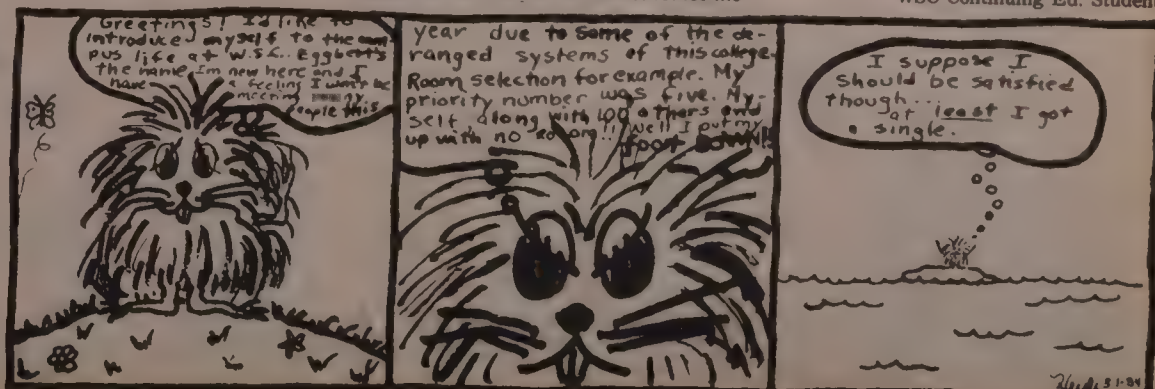 WSC Continuing Ed. Student
Greetings! I'd like to
introduce myself to the cam
pus life at W.S.C.. Eggbert's
the name. Im new here and I
have a feeling I won't be
meeting many
people this
year due to some of the de-
ranged systems of this college.
Room selection for example. My
priority number was five. My-
self along with 100 others end
up with no room!! Well I put my
foot down!!
I suppose I
should be satisfied
though...
at least I got
a single.
Heidi 5 1-84